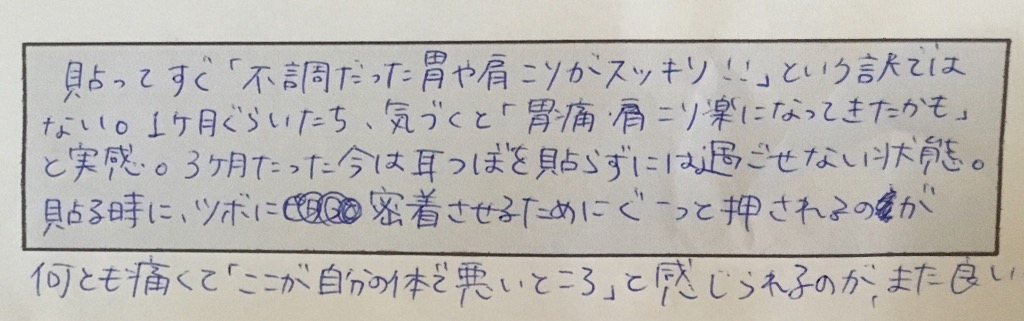 貼ってすぐ「不調だった胃や肩こりがスッキリ!!」という訳では
ない。1ケ月ぐらいたち、気づくと「胃痛・肩こり楽になってきたかも」
と実感。3ケ月たった今は耳つぼを貼らずには過ごせない状態。
貼る時に、ツボに密着させるためにぐーっと押されるのが
何とも痛くて「ここが自分の体で悪いところ」と感じられるのが、また良い